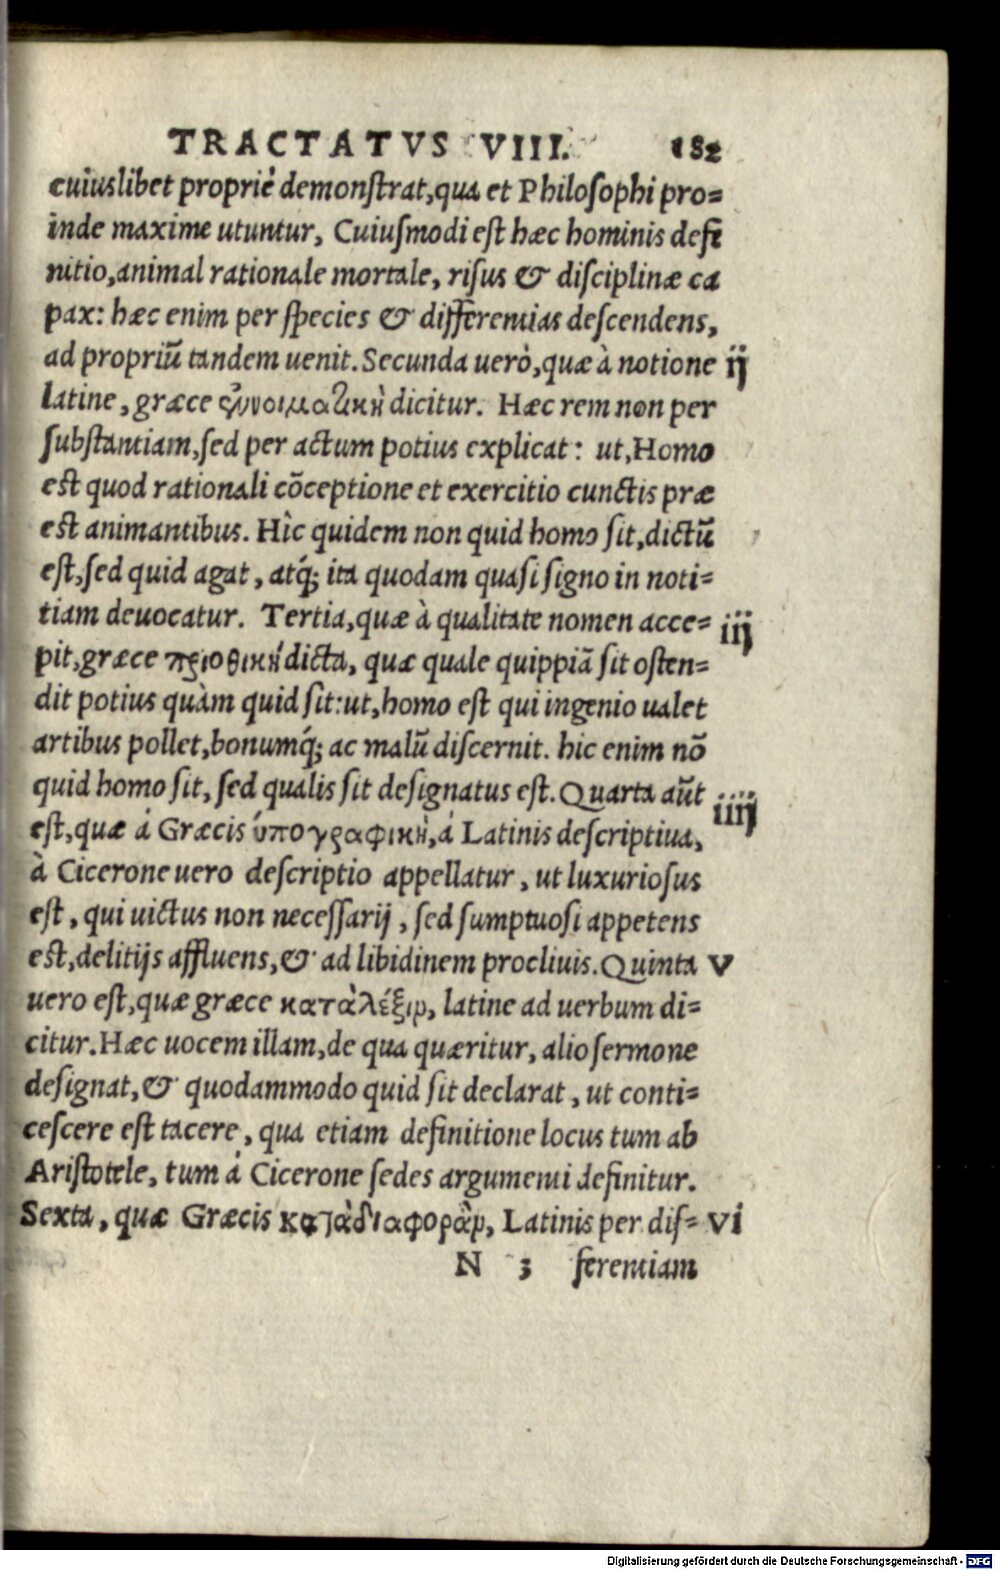 TRACTATVS VIII. 182
cuiuslibet propriè demonſtrat, qua et Philoſophi pro=
inde maxime utuntur, Cuiuſmodi eſt hæc hominis defi
nitio, animal rationale mortale, riſus & diſciplinæ ca
pax: hæc enim per ſpecies & differentias deſcendens,
ad propriũ tandem uenit. Secunda uerò, quæ à notione ij
latine, græce ἐννοιματικὴ dicitur. Hæc rem non per
ſubſtantiam, ſed per actum potius explicat: ut, Homo
eſt quod rationali cõceptione et exercitio cunctis præ
eſt animantibus. Hîc quidem non quid homo ſit, dictũ
eſt, ſed quid agat, atq́; ita quodam quaſi ſigno in noti=
tiam deuocatur. Tertia, quæ à qualitate nomen acce= iij
pit, græce πριοθικὴ dicta, quæ quale quippiã ſit oſten=
dit potius quàm quid ſit: ut, homo eſt qui ingenio ualet
artibus pollet, bonumq́; ac malũ diſcernit. hic enim nõ
quid homo ſit, ſed qualis ſit deſignatus eſt. Quarta aũt iiij
eſt, quæ á Græcis ὑπογραφικὴ, á Latinis deſcriptiua,
à Cicerone uero deſcriptio appellatur, ut luxurioſus
eſt, qui uictus non neceſſarij, ſed ſumptuoſi appetens
eſt, delitijs affluens, & ad libidinem procliuis. Quinta V
uero eſt, quæ græce κατὰ λέξιν, latine ad uerbum di=
citur. Hæc uocem illam, de qua quæritur, alio ſermone
deſignat, & quodammodo quid ſit declarat, ut conti=
ceſcere eſt tacere, qua etiam definitione locus tum ab
Ariſtotele, tum á Cicerone ſedes argumenti definitur.
Sexta, quæ Græcis κατὰ διαφορὰν, Latinis per diſ= Vi
N 3 ferentiam
Digitalisierung gefördert durch die Deutsche Forschungsgemeinschaft - DFG